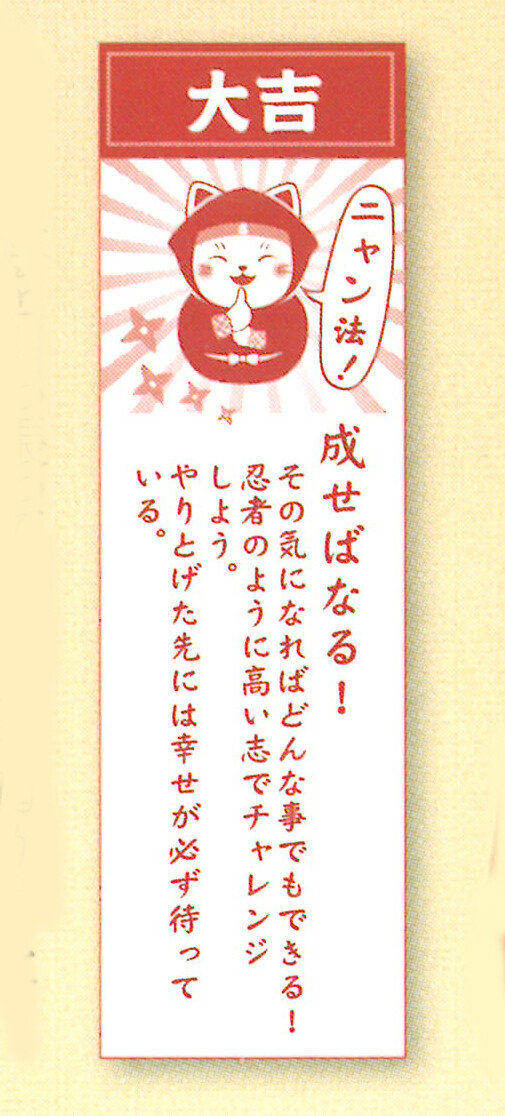 大吉
ニャン法!
成せばなる!
その気になればどんな事でもできる!
忍者のように高い志でチャレンジ
しよう。
やりとげた先には幸せが必ず待って
いる。